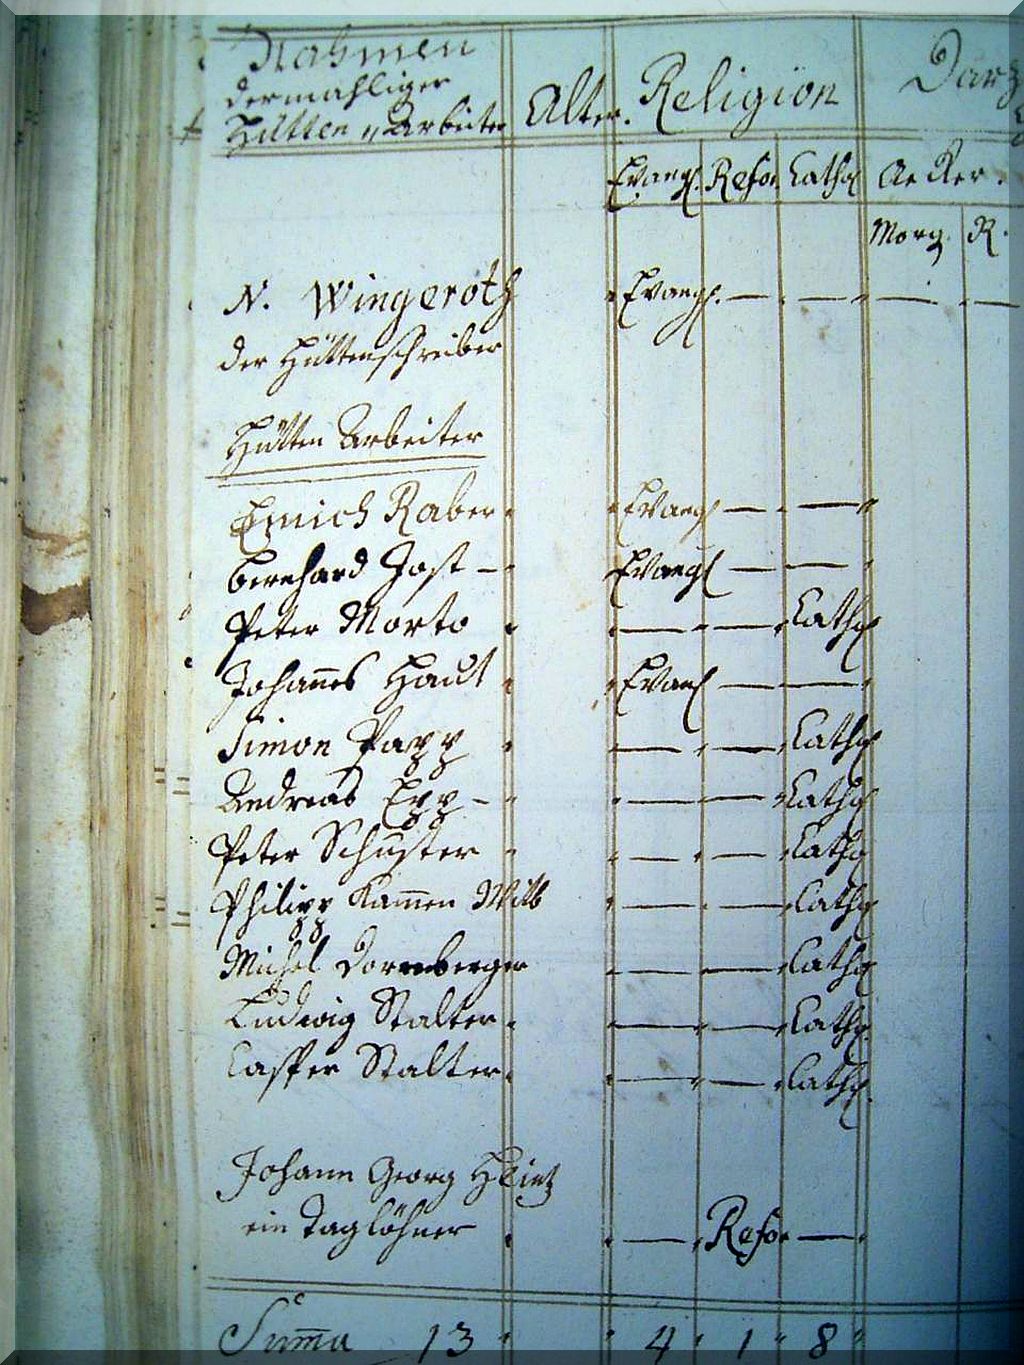 Nahmen
dermahliger
Hütten Arbeiter Alter. Religion Darz
Evangl. Refor. Cathol Aecker.
Morg. R.
N. Wingeroth Evangl. — — — —
der Hüttenschreiber
Hütten Arbeiter
Emich Raber Evangl — —
Bernhard Jost — Evangl — —
Peter Morto — — Cathol
Johannes Haut Evangl — —
Simon Papp — — Cathol
Andreas Epp — — — Cathol
Peter Schuster — — Cathol
Philipp Kam̄en Witb — — Cathol
Michel Dornberger — — Cathol
Ludwig Stalter — — Cathol.
Casper Stalter — — Cathol.
Johann Georg
ein Taglöhner — Refor —
Sum̄a 13 4 1 8